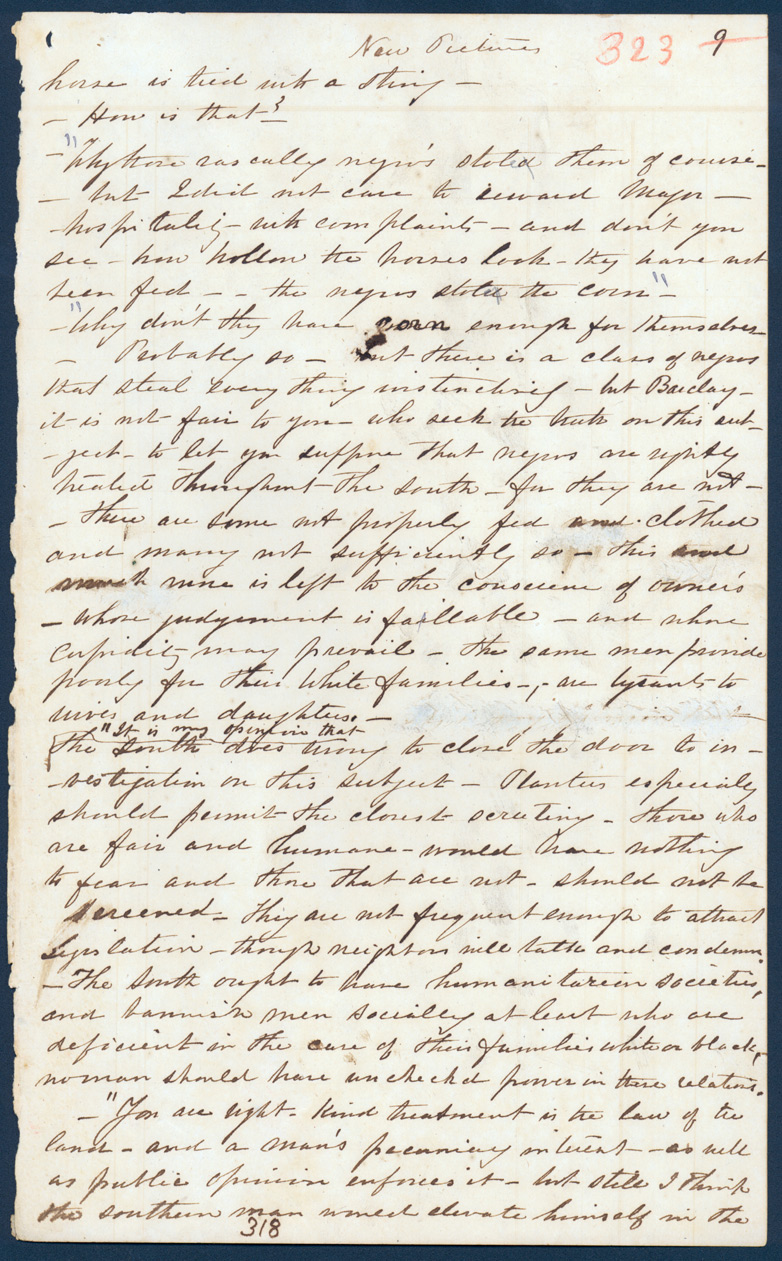 New Pictures 323 9
horse is tied with a string —
— How is that?
— "Why those rascally negro's stoled them of course —
— but I did not care to reward Major —
-hospitality — with complaints — and don't you
see — how hollow the horses look — they have not
been fed — — the negros stoled the corn" —
— "Why don't they have corn enough for themselves
— Probably so — but there is a class of negros
that steal every thing instinctively — but Barclay —
it is not fair to you — who seek the truth on this sub-
-ject — to let you suppose that negros are rightly
treated throughout the south — for they are not —
— There are some not properly fed and clothed
and many not sufficiently so — this and
much more is left to the conscience of owner's
— whose judgement is faillable — and whose
cupidity may prevail — the same men provide
poorly for their white families —, — are tyrants to
wives and daughters. —
"It is my opinion that
The South does wrong to close "the door to in-
-vestigation on this subject — Planters especially
should permit the closest scrutiny — those who
are fair and humane — would have nothing
to fear and those that are not — should not be
screened — They are not frequent enough to attract
legislation — though neighbors will talk and condemn.
— The South ought to have humanitarian societies,
and bannish men socially at least who are
deficient in the care of their families white or black,
no man should have unchecked power in these relations.
— "You are right — Kind treatment is the law of the
land — and a man's pecuniary interest — as well
as public opinion enforces it — but still I think
the southern man would elevate himself in the
318